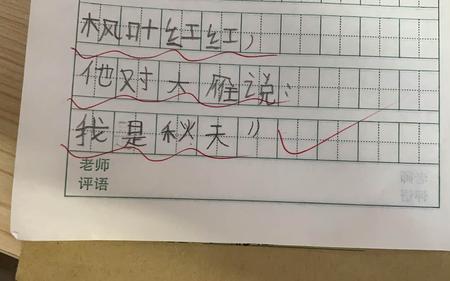 枫叶红红，
他对大雁说：
我是秋天”
老师
评语